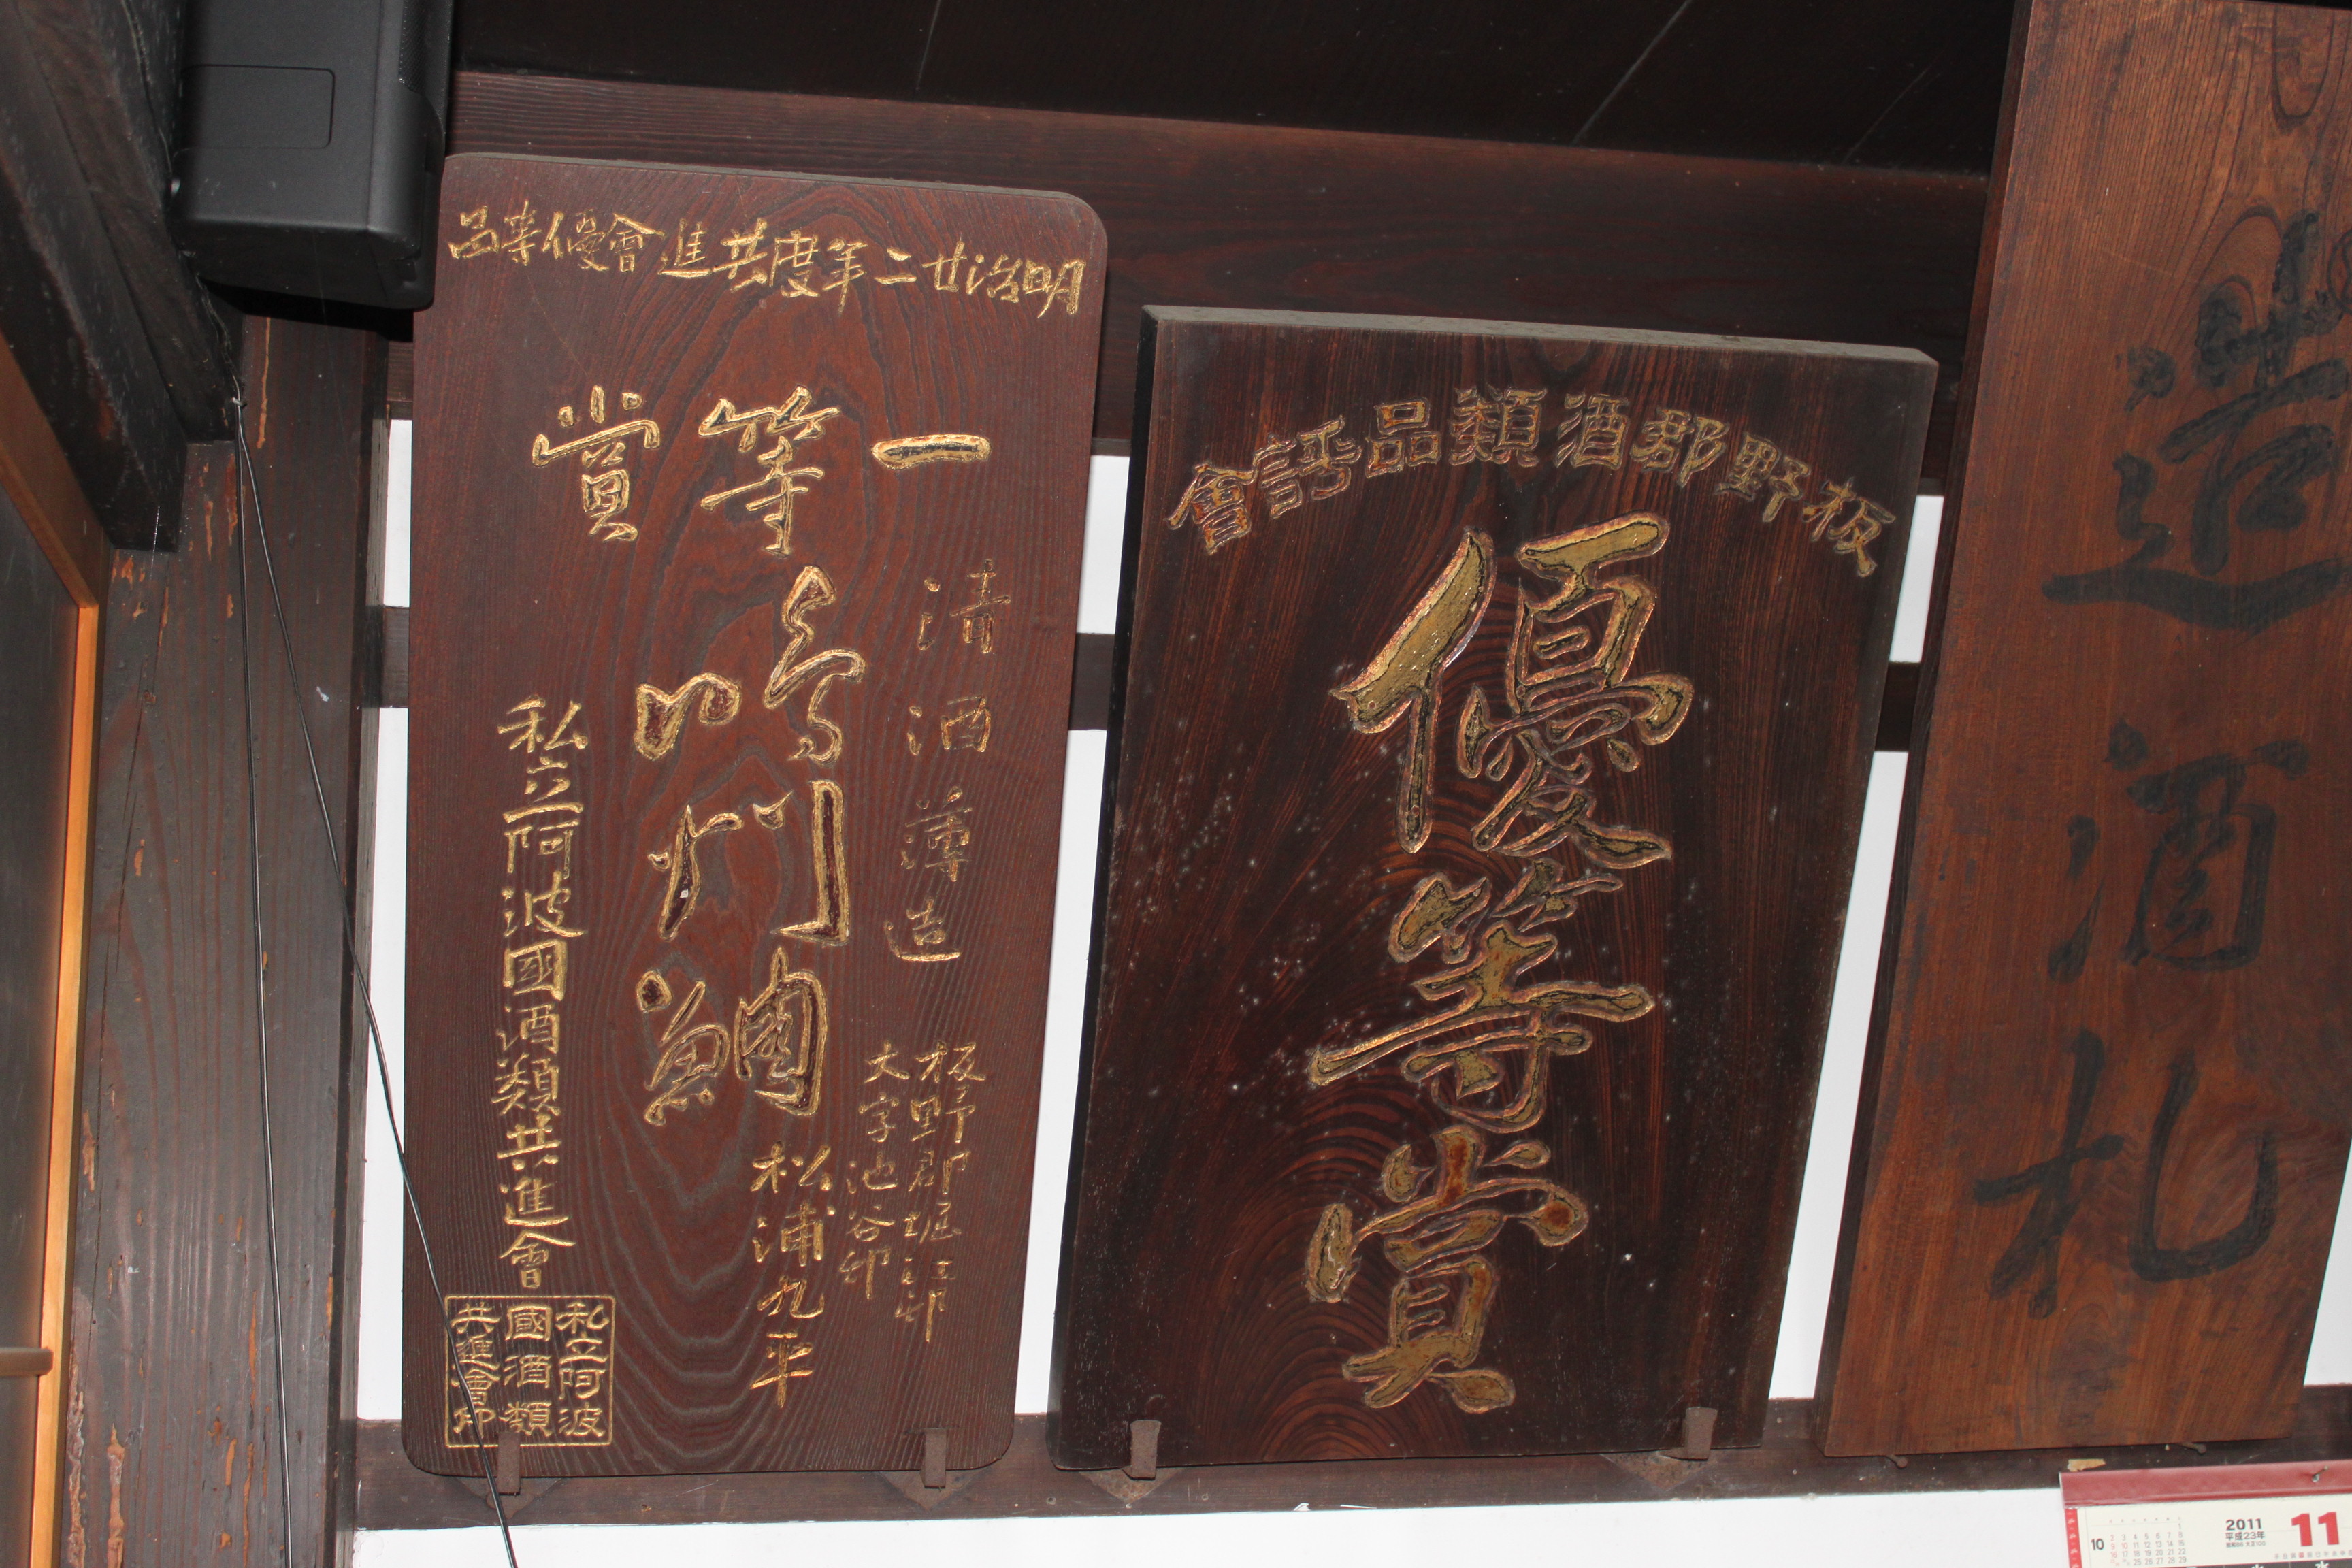 造酒札
板野郡酒類品評會
優等賞
明治廿二年度共進會優等品
一等賞
清酒薄造
板野郡堀江邨
大字池谷
鳴門鯛
松浦九平
私立阿波國酒類共進會
私立阿波
國酒類
共進會印
2011
平成23年
11
10